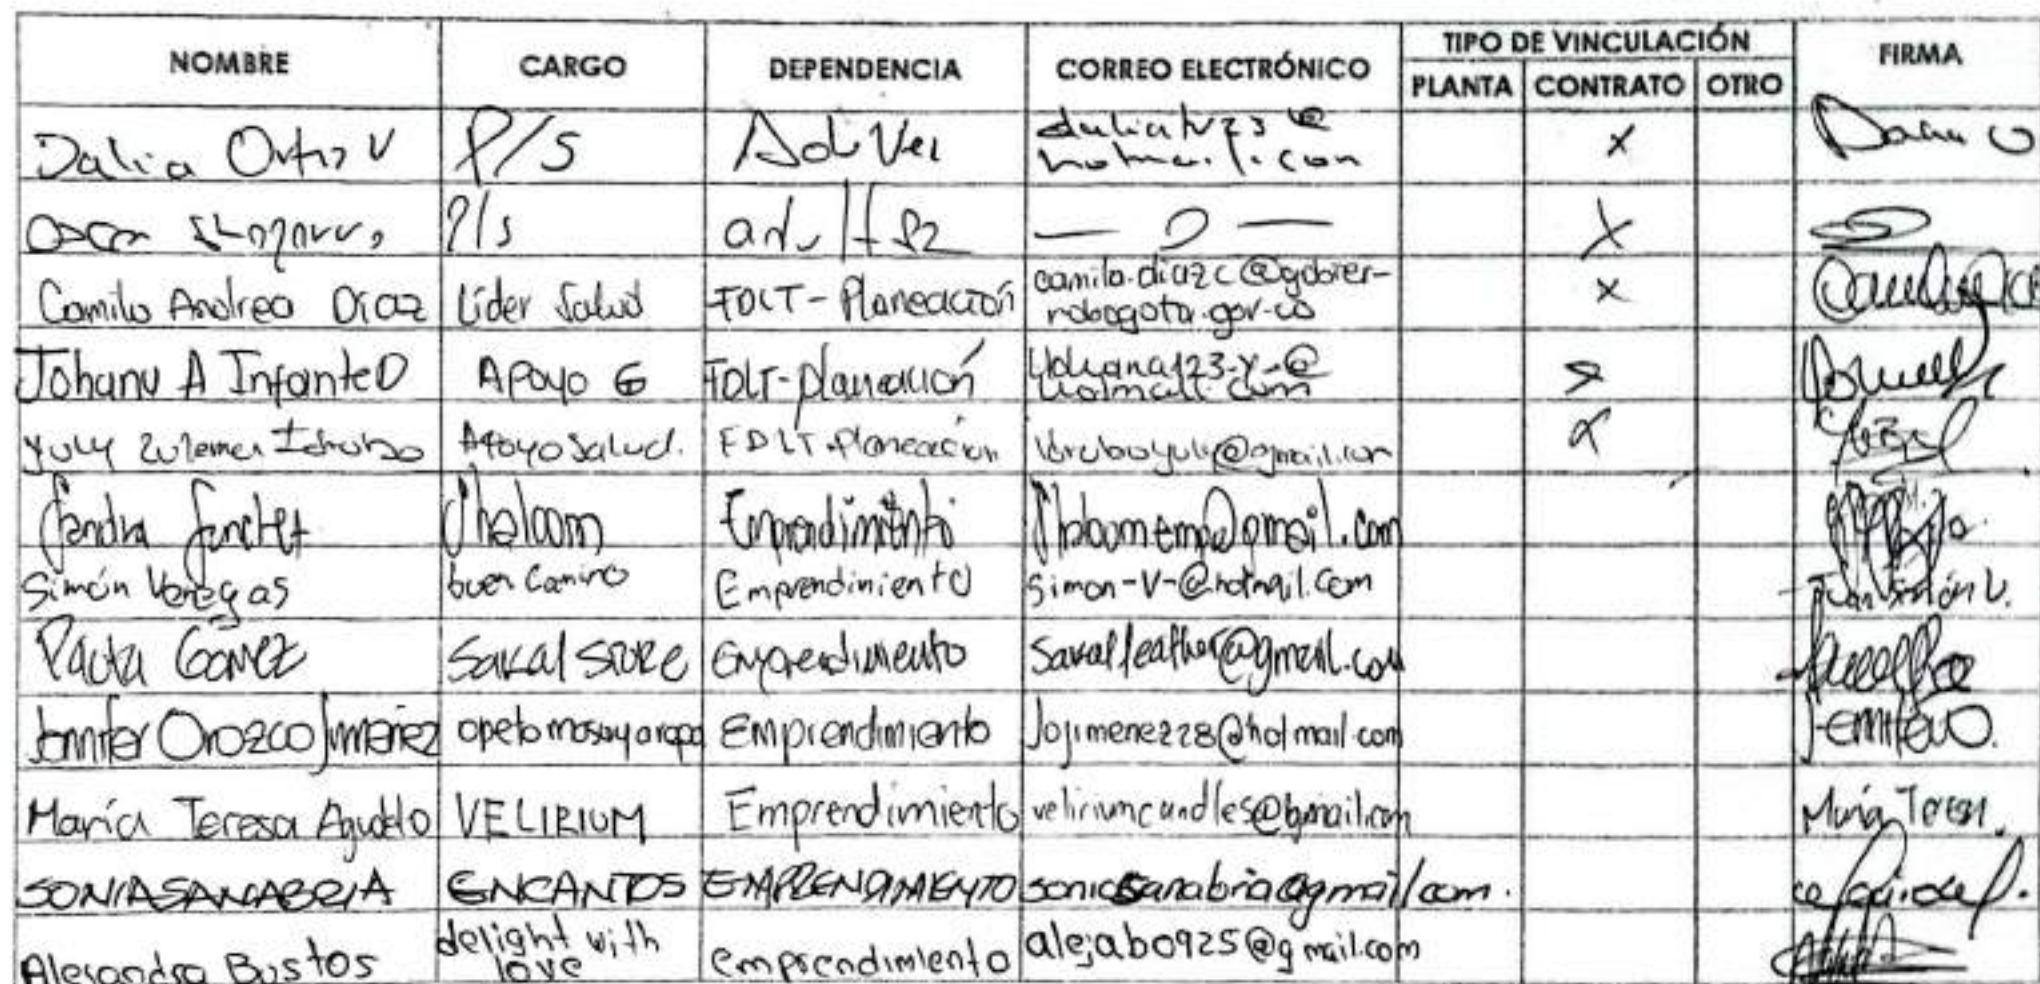 NOMBRE CARGO DEPENDENCIA CORREO ELECTRÓNICO TIPO DE VINCULACIÓN FIRMA
PLANTA CONTRATO OTRO
Dalia Ortiz V P/S X
hotmail.com
Oscar P/s — — X
Camilo Andrea Diaz Líder Salud FDLT - Planeación camila.diazc@gobier- X
nobogota.gov.co
Johana A Infante D Apoyo G FDLT - planeación
hotmail.com
Yuly Zulema Idrobo Apoyo Salud. FDLT - Planeación idroboyuly@gmail.com
Sandra Sanchez Shaloom Emprendimiento Shaloomemp@gmail.com
Simón Venegas buen Camino Emprendimiento Simon-V-@hotmail.com Juan Simón V.
Paola Gómez Sakal STORE Emprendimiento Sakalleather@gmail.com
Jennifer Orozco Jimenez Emprendimiento Jojimenez28@hotmail.com Jennifer O.
María Teresa Agudelo VELIRIUM Emprendimiento veliriumcandles@gmail.com María Teresa.
SONIA SANABRIA ENCANTOS EMPRENDIMIENTO soniasanabria@gmail.com.
Alejandra Bustos delight with emprendimiento alejab0925@gmail.com
love